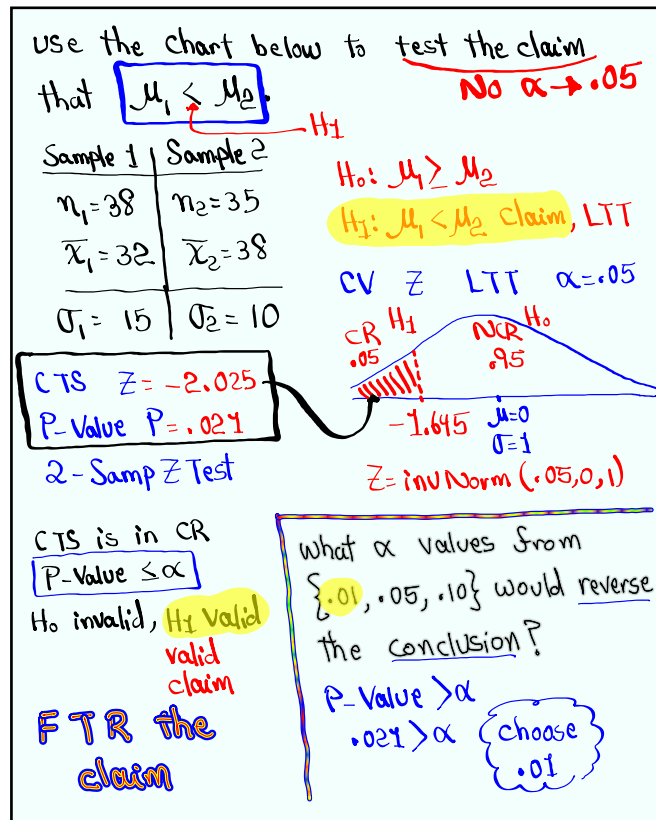 use the chart below to test the claim
that μ₁ < μ₂.
No α → .05
H₁
Sample 1 Sample 2
n₁=38 n₂=35
x̄₁=32 x̄₂=38
σ₁= 15 σ₂=10
H₀: μ₁ ≥ μ₂
H₁: μ₁ < μ₂ Claim, LTT
CV Z LTT α=.05
CR H₁ NCR H₀
.05 .95
-1.645 μ=0
σ=1
Z=invNorm(.05,0,1)
CTS Z=-2.025
P-Value P=.021
2-Samp Z Test
CTS is in CR
P-Value ≤ α
H₀ invalid, H₁ Valid
valid
claim
FTR the
claim
what α values from
{.01, .05, .10} would reverse
the conclusion?
P-Value > α
.021 > α
choose
.01